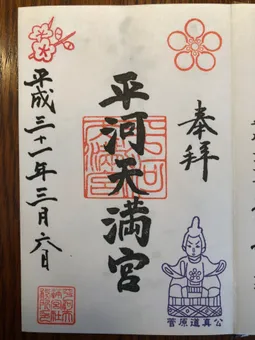 奉拝
平河天満宮
平成三十一年三月六日
菅原道真公